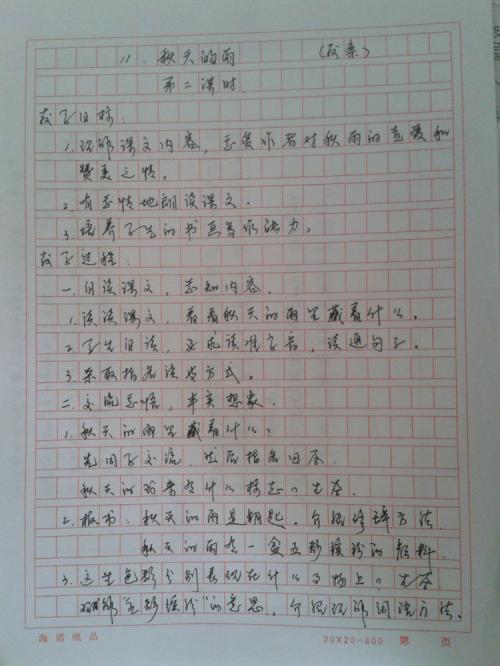 11、秋天的雨 （教案）
第二课时
教学目标：
1、理解课文内容，感受作者对秋雨的喜爱和
赞美之情。
2、有感情地朗读课文。
3、培养学生的书面写作能力。
教学过程：
一、自读课文，感知内容。
1、读读课文，看看秋天的雨里藏着什么。
2、学生自读，要求读准字音，读通句子。
3、采取指名读等方式。
二、交流感悟，丰实想象。
1、秋天的雨里藏着什么？
先同学交流，然后指名回答。
秋天的雨来有什么标志？生答
2、板书：秋天的雨是钥匙。介绍修辞方法
秋天的雨有一盒五彩缤纷的颜料
3、这些色彩分别表现在什么事物上？生答
理解“五彩缤纷”的意思。介绍理解词语方法。
海诺纸品 20X20=400 第 页